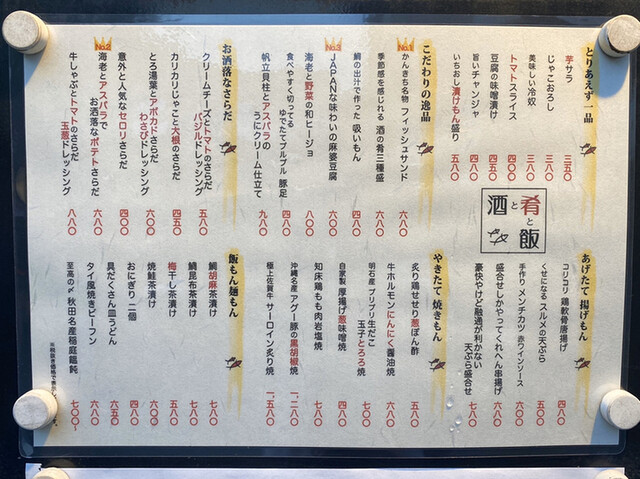 とりあえず一品
芋サラ 三五〇
じゃこおろし 三八〇
美味しい冷奴 三八〇
トマトスライス 四〇〇
豆腐の味噌漬け 四五〇
旨いチャンジャ 四五〇
いちおし漬けもん盛り 五八〇
こだわりの逸品
No.1
かんきち名物 フィッシュサンド 六八〇
季節感を感じれる 酒の肴三種盛 六八〇
鯛の出汁で作った 吸いもん 四八〇
No.3
JAPANな味わいの麻婆豆腐 六〇〇
海老と野菜の和ピージョ 八〇〇
食べやすく切ってる
ゆでたてプルプル 豚足 四八〇
帆立貝柱とアスパラの
うにクリーム仕立て 九八〇
お洒落なさらだ
クリームチーズとトマトのさらだ
バジルドレッシング 五八〇
カリカリじゃこと大根のさらだ 四五〇
とろ湯葉とアボカドさらだ
わさびドレッシング 六〇〇
意外と人気なセロリさらだ 四〇〇
No.2
海老とアスパラで
お洒落なポテトさらだ 六八〇
牛しゃぶとトマトのさらだ
玉葱ドレッシング 八八〇
肴と飯と酒
あげたて揚げもん
コリコリ 鶏軟骨唐揚げ 四八〇
くせになる スルメの天ぷら 五〇〇
手作り メンチカツ 赤ワインソース 六〇〇
盛合せしかやってくれへん串揚げ 六八〇
豪快やけど融通が利かない
天ぷら盛合せ 七八〇
やきたて焼きもん
炙り鶏せせり葱ぽん酢 五八〇
牛ホルモンにんにく醤油焼 六八〇
明石産 プリプリ生だこ
玉子とろろ焼 七〇〇
自家製 厚揚げ葱味噌焼 四八〇
知床鶏もも肉岩塩焼 七八〇
沖縄名産 アグー豚の黒胡椒焼 一、二八〇
極上佐賀牛 サーロイン炙り焼 一、五八〇
飯もん麺もん
鯛胡麻茶漬け 七八〇
鯛昆布茶漬け 七八〇
梅干し茶漬け 五八〇
焼鮭茶漬け 五八〇
おにぎり 二個 四〇〇
具だくさん皿うどん 六五〇
タイ風焼きビーフン 六八〇
至高の〆 秋田名産稲庭饂飩 七〇〇
※税抜き価格で表示